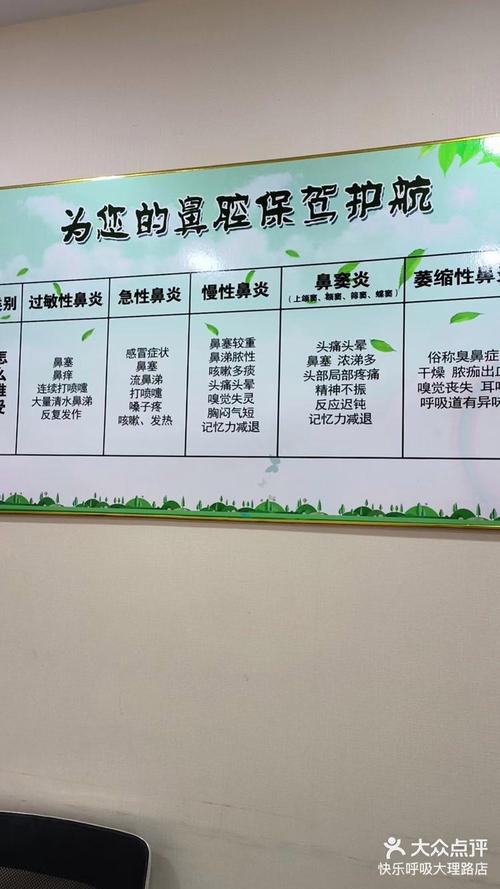 为您的鼻腔保驾护航
别
过敏性鼻炎
急性鼻炎
慢性鼻炎
鼻窦炎
（上颌窦、额窦、筛窦、蝶窦）
萎缩性鼻炎
鼻塞
鼻痒
连续打喷嚏
大量清水鼻涕
反复发作
感冒症状
鼻塞
流鼻涕
打喷嚏
嗓子疼
咳嗽、发热
鼻塞较重
鼻涕脓性
咳嗽多痰
头痛头晕
嗅觉失灵
胸闷气短
记忆力减退
头痛头晕
鼻塞 浓涕多
头部局部疼痛
精神不振
反应迟钝
记忆力减退
俗称臭鼻症
干燥 脓痂出血
嗅觉丧失 耳
呼吸道有异味
大众点评
快乐呼吸大理路店